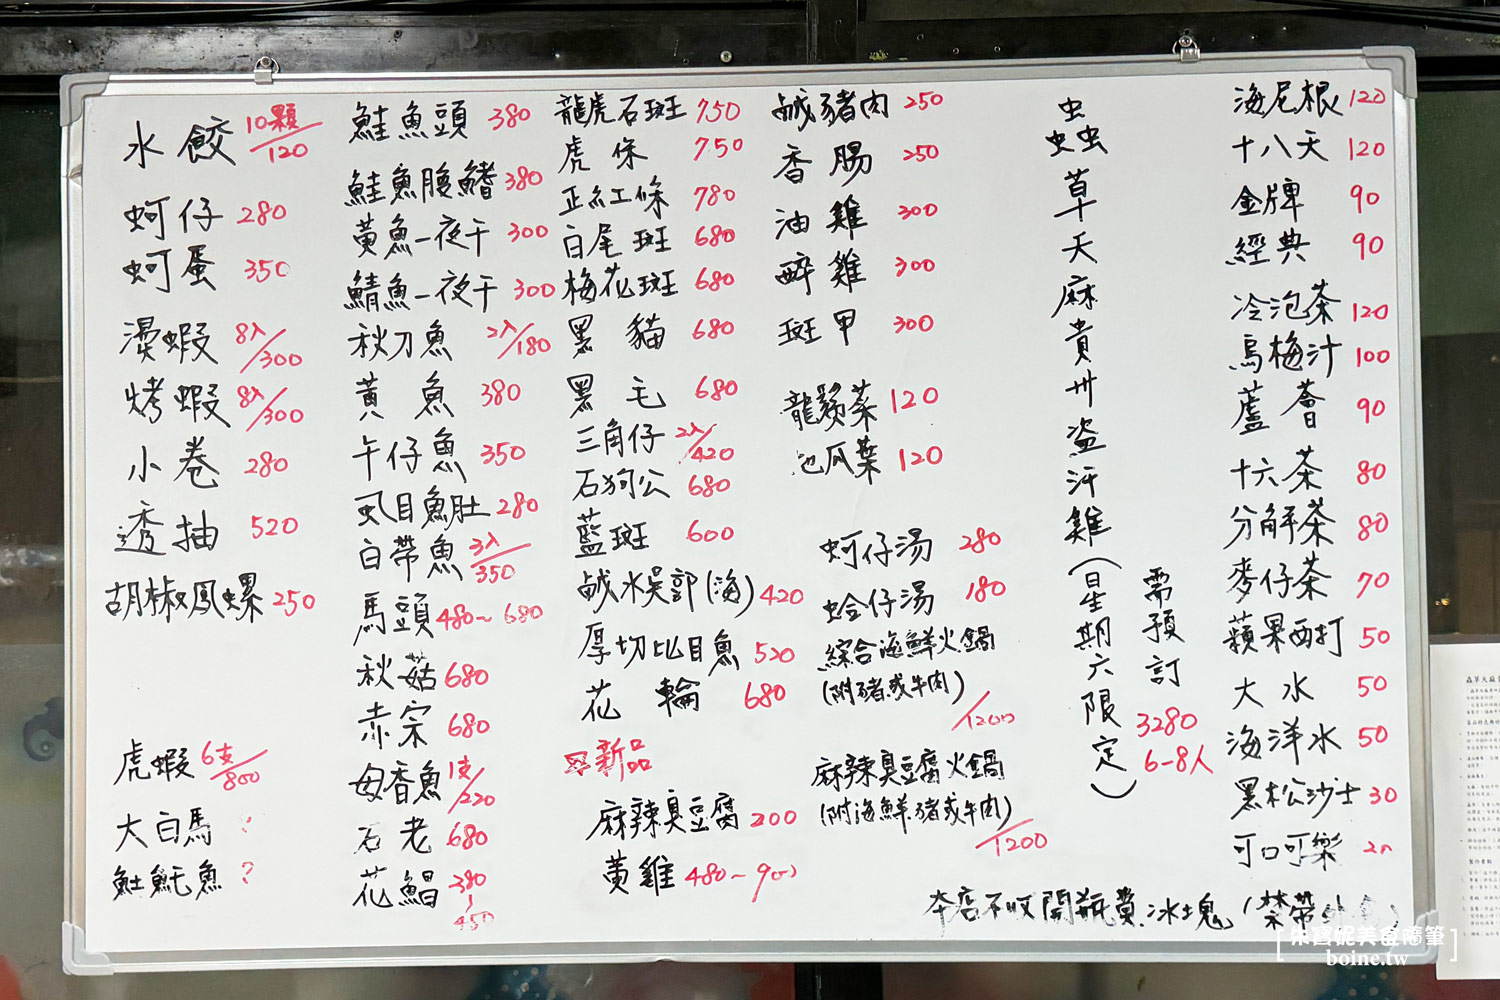 水餃 10顆/120
蚵仔 280
蚵蛋 350
燙蝦 8入/300
烤蝦 8入/300
小卷 280
透抽 520
胡椒鳳螺 250
虎蝦 6支/800
大白馬 ?
魟魠魚 ?
鮭魚頭 380
鮭魚腹鰭 380
黃魚一夜干 300
鯖魚一夜干 300
秋刀魚 2入/180
黃魚 380
午仔魚 350
虱目魚肚 280
白帶魚 3入/350
馬頭 480~680
秋菇 680
赤宗 680
母香魚 1支/220
石老 680
花鯧 380~450
龍虎石斑 750
虎條 750
正紅條 780
白尾斑 680
梅花斑 680
黑貓 680
黑毛 680
三角仔 2入/420
石狗公 680
藍斑 600
鹹水吳郭(海) 420
厚切比目魚 520
花輪 680
新品
麻辣臭豆腐 200
黃雞 480~900
鹹豬肉 250
香腸 250
油雞 300
醉雞 300
斑甲 300
龍鬚菜 120
地瓜葉 120
蚵仔湯 280
蛤仔湯 180
綜合海鮮火鍋
(附豬或牛肉)
/1200
麻辣臭豆腐火鍋
(附海鮮.豬或牛肉)
/1200
蟲草天麻貴州盜汗雞(星期六限定)
需預訂
3280
6-8人
海尼根 120
十八天 120
金牌 90
經典 90
冷泡茶 120
烏梅汁 100
蘆薈 90
十六茶 80
分解茶 80
麥仔茶 70
蘋果西打 50
大水 50
海洋水 50
黑松沙士 30
可口可樂
本店不收開瓶費.冰塊(禁帶外食)
[朱寶妮美食隨筆]
boine.tw